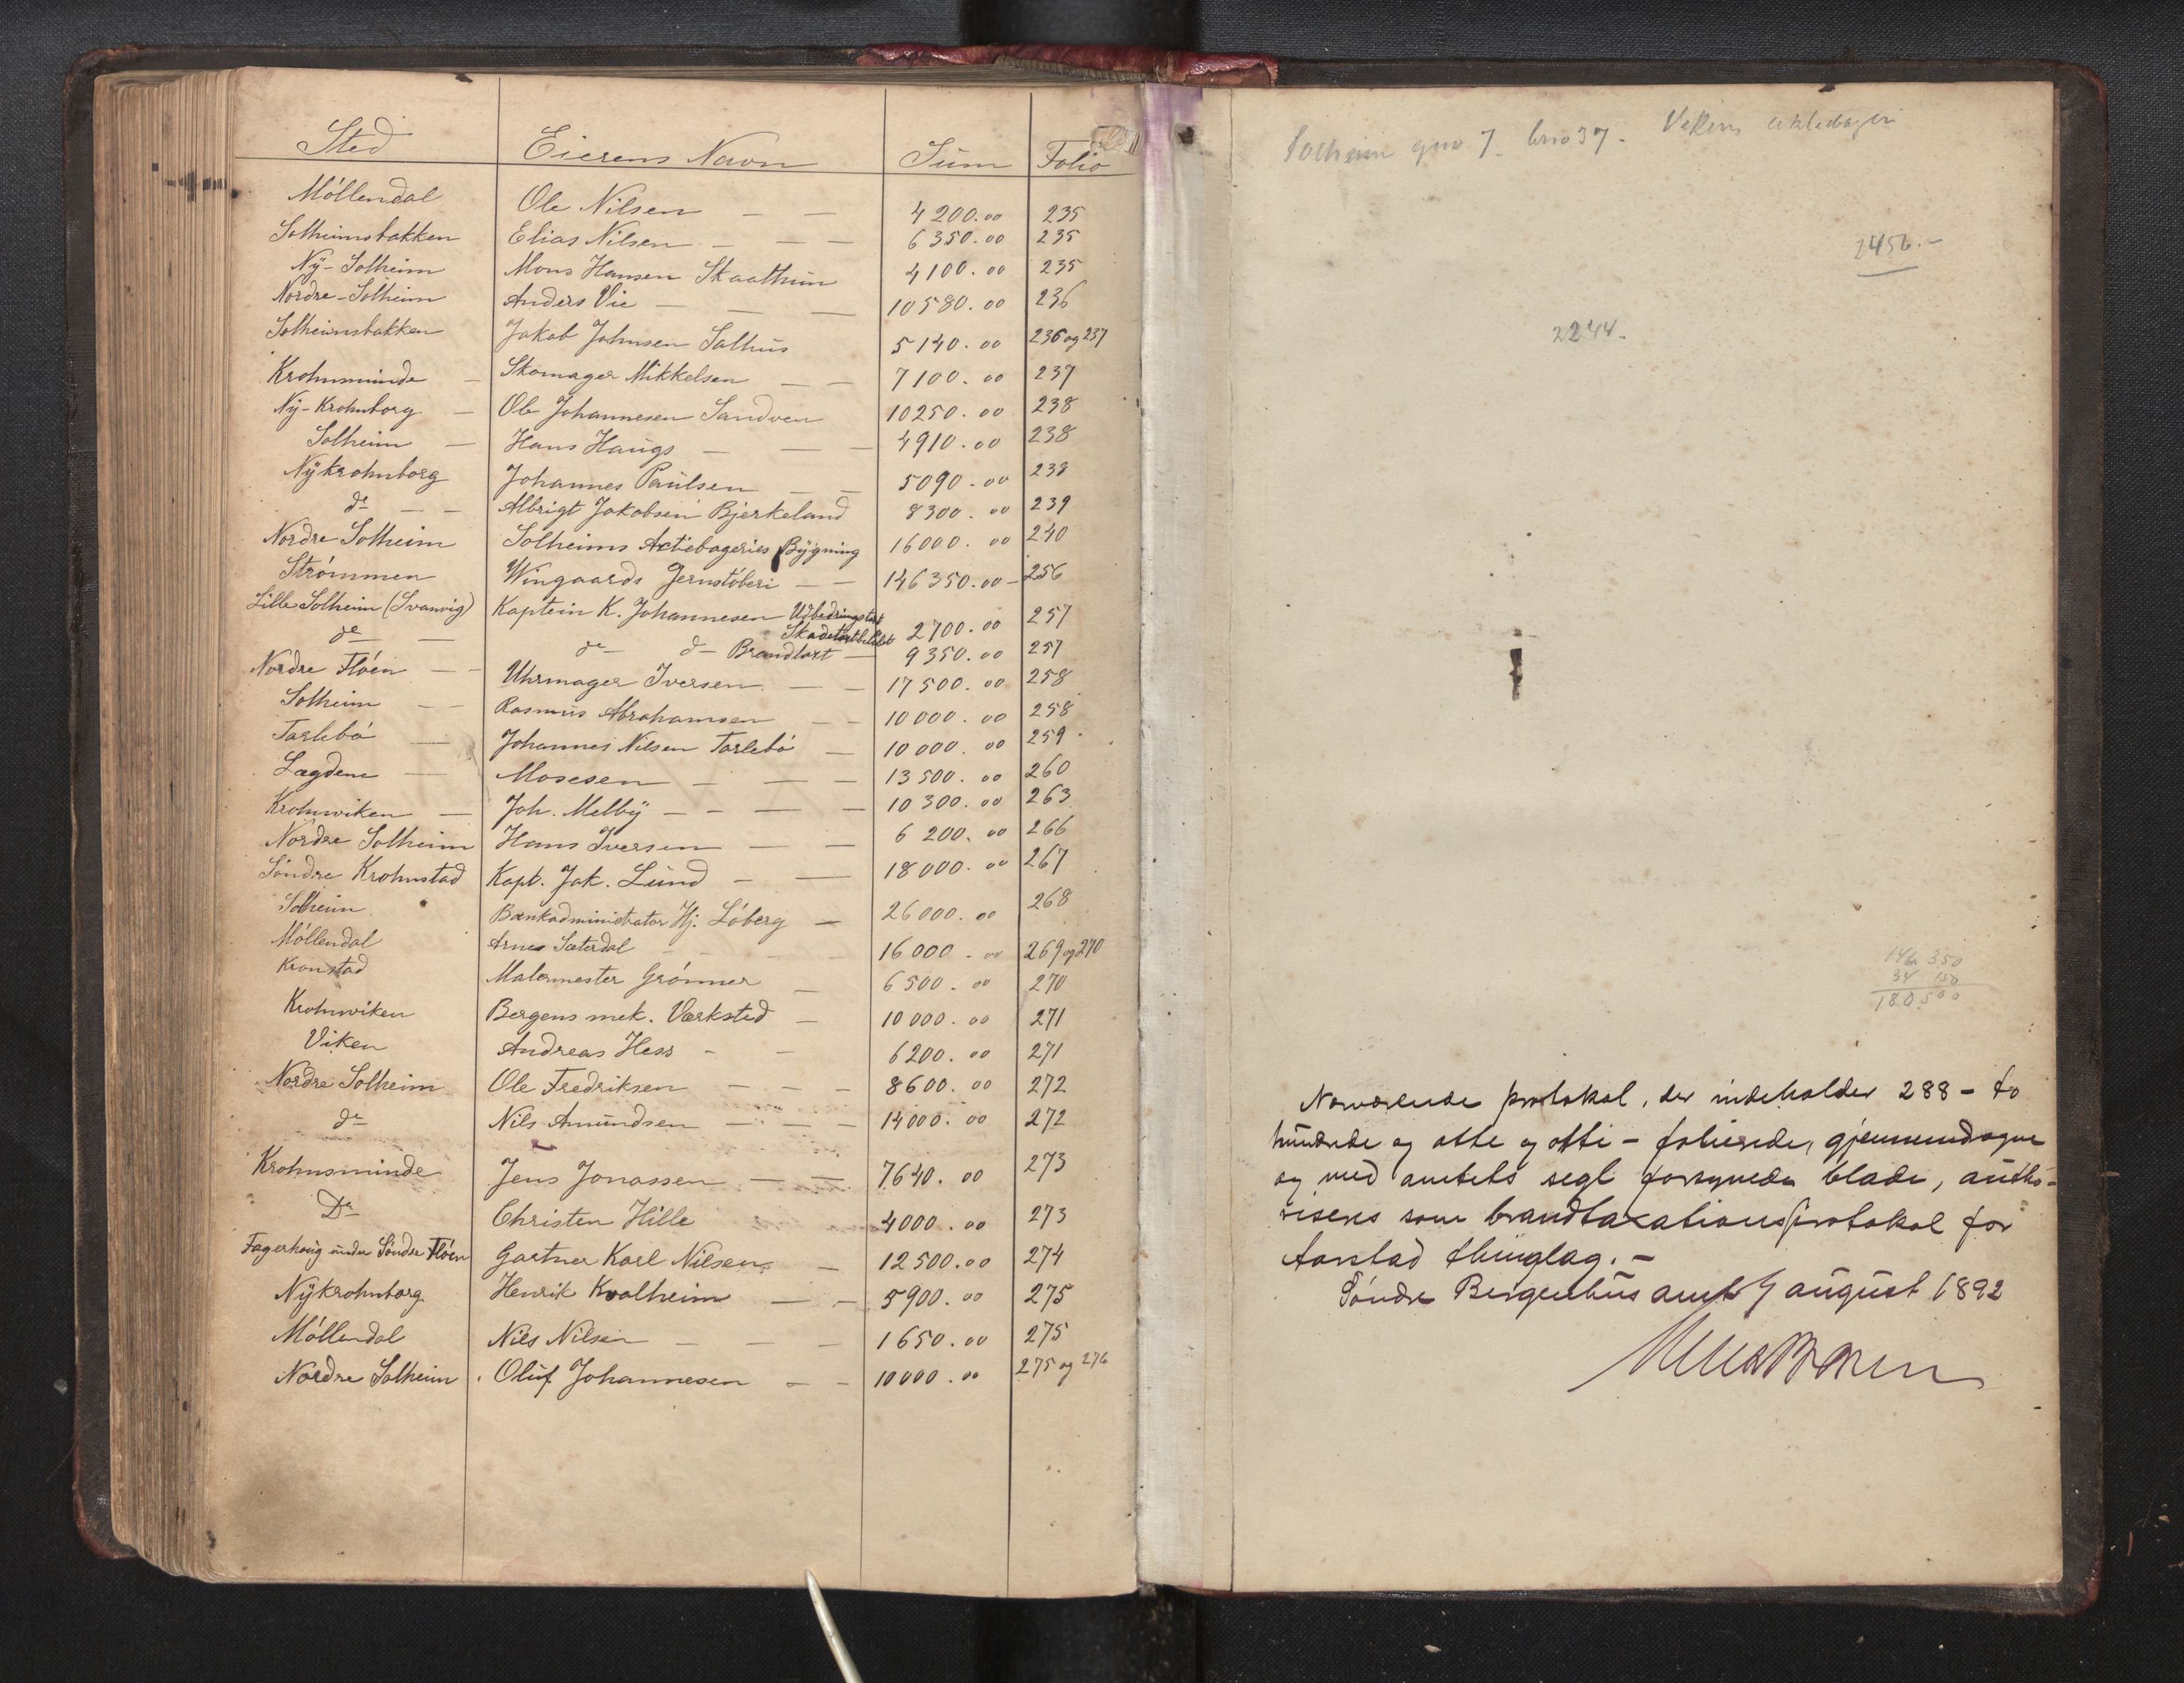 Sted Eierens Navn Sum Folio
Möllendal Ole Nilsen — — 4200.00 235
Solheimsbakken Elias Nilsen — — — 6350.00 235
Ny-Solheim Mons Hansen Skaathun 4100.00 235
Nordre-Solheim Anders Vie — — — 10580.00 236
Solheimsbakken Jakob Johnsen Salhus 5140.00 236 og 237
Krohnsminde — Skomager Mikkelsen — — 7100.00 237
Ny-Krohnborg — Ole Johannesen Sandven 10250.00 238
Solheim — Hans Haugs — — — 4910.00 238
Nykrohnborg Johannes Paulsen — — 5090.00 238
do — — Albrigt Jakobsen Bjerkeland 8300.00 239
Nordre Solheim Solheims Actiebageries Bygning 16000.00 240
Strömmen Wingaards Jernstöberi — — 146350.00 — 256
Lille Solheim (Svanvig) Kaptein K. Johannesen Udbedringstaxt
Skadetaxtbeløbet 2700.00 257
do — do do Brandtaxt — 9350.00 257
Nordre Flöen — — Uhrmager Iversen — — 17500.00 258
Solheim — — Rasmus Abrahamsen — — 10000.00 258
Tarlebö — Johannes Nilsen Tarlebö — 10000.00 259
Lægdene — Mosesen — — — 13500.00 260
Krohnviken — Joh. Melby — — — — 10300.00 263
Nordre Solheim Hans Iversen — — 6200.00 266
Söndre Krohnstad Kapt. Jak. Lund — — 18000.00 267
Solheim Bankadministrator Hj. Löberg — 26000.00 268
Möllendal Arnes Sæterdal — — — 16000.00 269 og 270
Kronstad Malermester Grönner — 6500.00 270
Krohnviken Bergens mek. Værksted — 10000.00 271
Viken Andreas Hess - — 6200.00 271
Nordre Solheim Ole Fredriksen — — — 8600.00 272
do Nils Amundsen — — — 14000.00 272
Krohnsminde Jens Jonassen — — 7640.00 273
Do Christen Hille 4000.00 273
Fagerhaug under Söndre Flöen Gartner Karl Nilsen — 12500.00 274
Nykrohnborg Henrik Kvalheim — — 5900.00 275
Möllendal Nils Nilsen — — — 1650.00 275
Nordre Solheim Oluf Johannesen — — 10000.00 275 og 276
Solheim gno 7. brno 37. Vikens
2456.—
2244.—
146 350
34 150
180.500
Nærværende protokol, der indeholder 288 – to
hundrede og otte og otti – folierede, gjennemdragne
og med amtets segl forsynede blade, autho-
riseres som brandtaxationsprotokol for
Aarstad thinglag. —
Söndre Bergenhus amt 9 august 1892